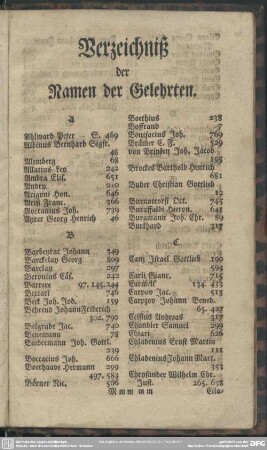 Verzeichniß
der
Namen der Gelehrten.
A
Ahlward Peter S. 469
Albinus Bernhard Sigfr.
48
Alemberg 68
Allatius Leo 242
Andrea Elis. 651
Andry 210
Arigoni Hon. 646
Arisi Franz. 366
Ayrer Georg Henrich 46
B
Barbeyrac Johann 149
Barckclay Georg 809
Barclay 297
Baronius Cäs. 242
Barrere 97. 145. 244
Beccari 746
Beck Joh. Jod. 159
Behrend Johann Friederich
302. 790
Belgrade Jac. 740
Benemann 78
Biedermann Joh. Gottl.
239
Boccacius Joh. 666
Boerhaave Hermann 299
497. 583
Börner Nic. 566
Boethius 238
Boffrand 7
Bonifacius Joh. 769
Brämer C. F. 529
von Brinken Joh. Jacob
193
Brockes Barthold Hinrich
681
Buder Christian Gottlieb
12
Buonaccorsi Oct. 745
Buraffaldi Hieron. 641
Buramanns Joh. Chr. 89
Burchard 317
C
Carl Israel Gottlieb 190
594
Carli Gianr. 715
134. 433
Carpov Jac. 513
Carpzov Johann Bened.
65. 427
Celsius Andreas 317
Chandler Samuel 299
Chiari 626
Chladenius Ernst Martin
111
Chladenius Johann Mart.
353
Chrysander Wilhelm Chr.
Just. 265. 628
M m m m m